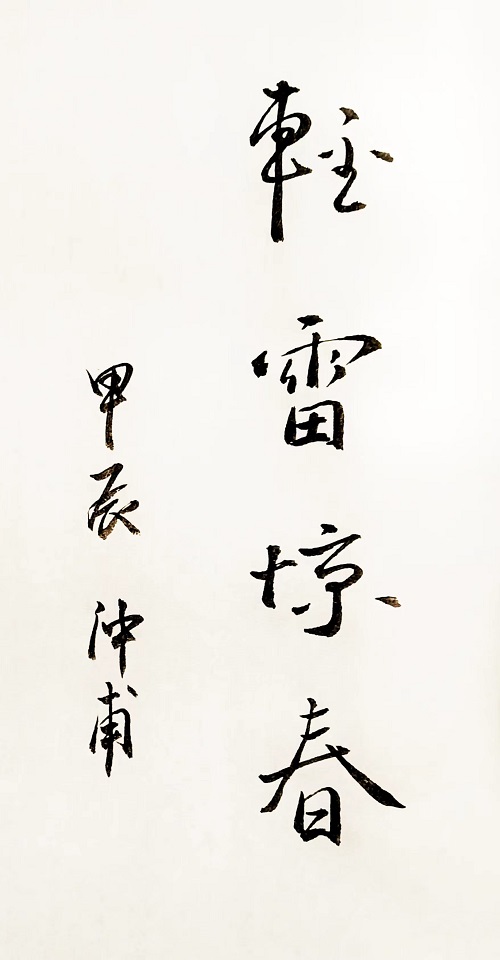 輕雷惊春
甲辰 沖甫